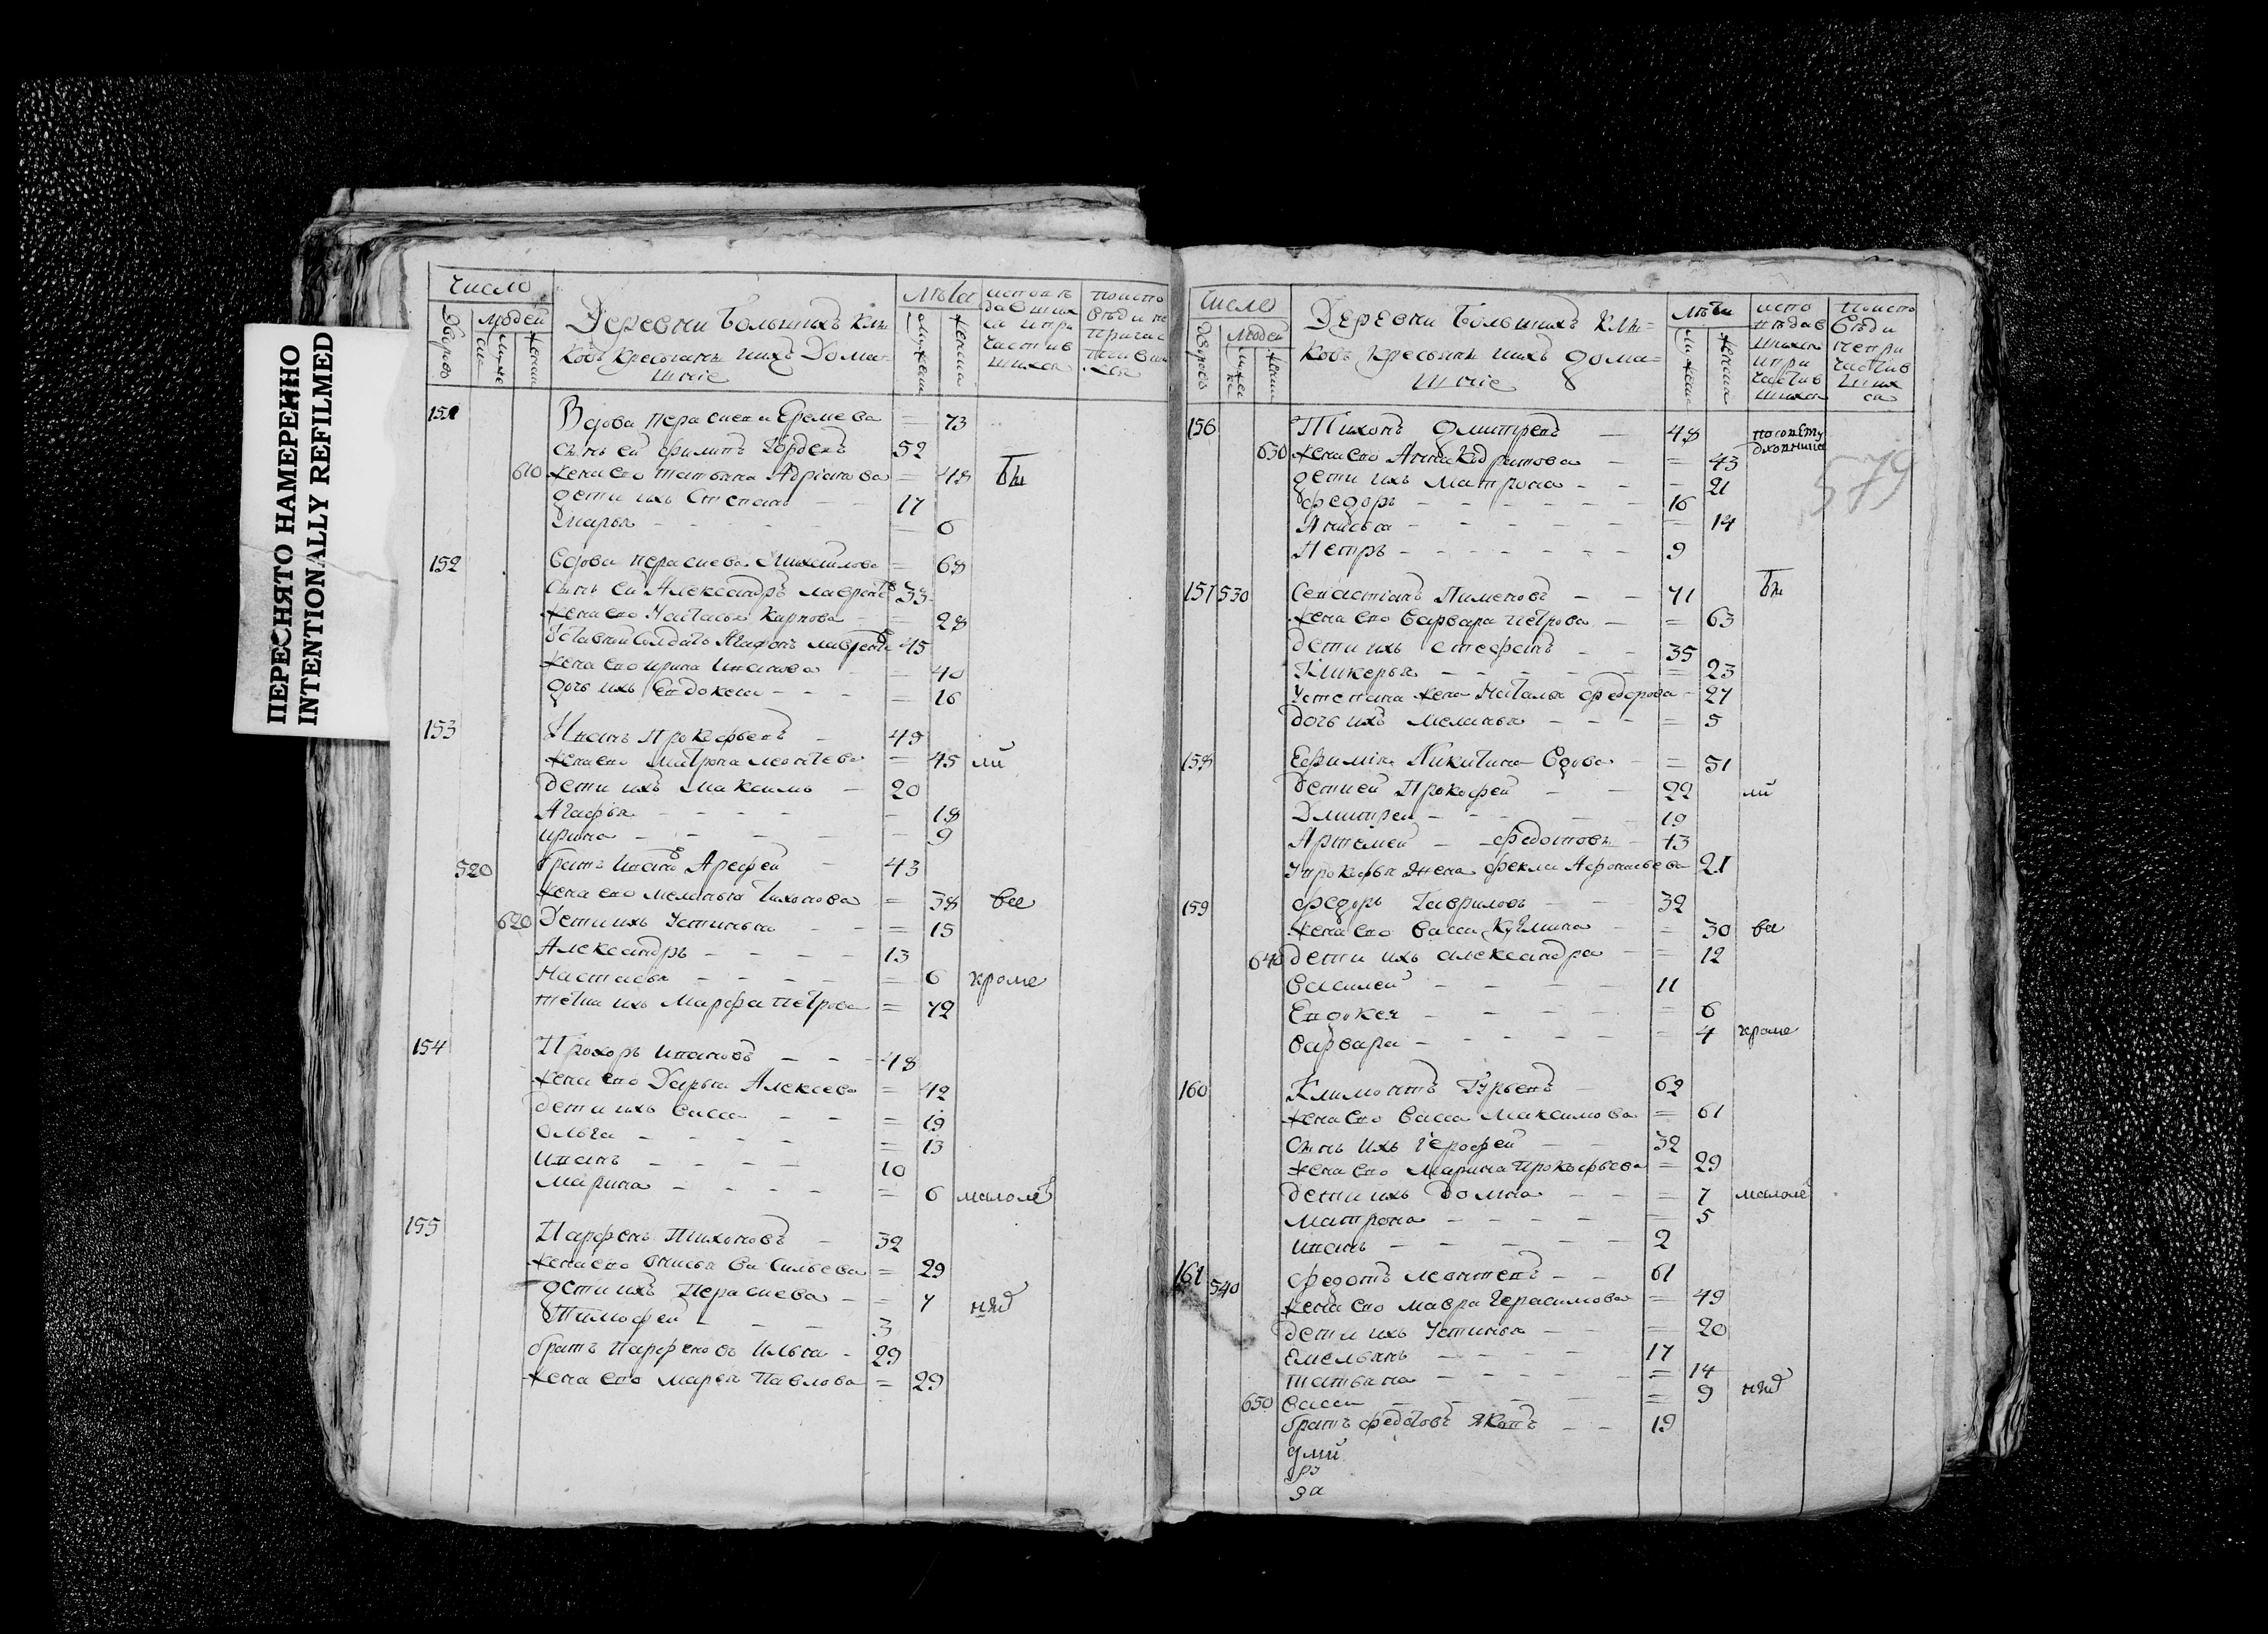 ПЕРЕСНЯТО НАМЕРЕННО
INTENTIONALLY REFILMED
Число
Дворов
людей
мужеска
женска
Деревни Большихъ Клю-
ковъ крестьяне ихъ Дома-
шніе
Лѣта
мужеска
женска
151 Вдова Пераскевя Еремева = 73
сынъ ей Филипъ Гордеевъ 52
610 жена его Татьяна Адріанова = 48
дети ихъ Степанъ - - 17
Марья - - - - = 6
152 Вдова Пераскева Михайлова = 68
сынъ ей Александръ Лаврентьевъ 33
жена его Настасья Карпова = 28
Ѡставной солдатъ Агафонъ Лаврентьевъ 45
жена его Ирина Иванова - 40
дочь ихъ Евдокея - - - = 16
153 Иванъ Прокофьевъ - 49
жена его Матрона Леонтева = 45 ли
дети ихъ Максимъ - 20
Агафья - - - - - 18
Ирина - - - - - 9
520 братъ Ивановъ Арефей - 43
жена его Меланья Тихонова = 38 все
620 Дети ихъ Устинья - - = 15
Александръ - - - - 13
Настасья - - - - = 6 кроме
тетка ихъ Марфа Петрова = 72
154 Прохоръ Ивановъ - - - 48
жена его Дарья Алексеева = 42
дети ихъ Васса - - = 19
Ольга - - - - = 13
Иванъ - - - - 10
Марина - - - - = 6 малолѣ
155 Парфенъ Тихоновъ - 32
жена его Анисья Васильева = 29
дети ихъ Пераскева - = 7
Тимофей - - - 3
братъ Парфеновъ Илья - 29
жена его Марья Павлова = 29
Число
Дворовъ
Людей
мужеска
женска
Деревни Большихъ Клю=
ковъ крестьяне ихъ дома=
шніе
Лѣта
мужеска
женска
579
156 Тихонъ Дмитревъ — 48
630 жена его Анна Кодратова - = 43
дети ихъ Матрона - - - 21
Федоръ - - - - - 16
Анисья - - - - - = 14
Петръ - - - - - - 9
157 530 Севастіанъ Пименовъ - - 71
жена его Варвара Петрова - = 63
дети ихъ Стефанъ - - 35
Гликерья - - - - - = 23
У Степана жена Наталья Федорова - 27
дочь ихъ Меланья - - - = 5
158 Ефимія Никитина Вдова - = 51
Дети ей Прокофей - - 22 ли
Дмитрей - - - - - 19
Артемей - - Федотовы - 13
У Прокофья жена Фекла Афонасьева 21
159 Федоръ Гавриловъ - - 32
жена его Васса Кузмина - = 30 все
640 дети ихъ Александра - = 12
Василей - - - - 11
Евдокея - - - - - = 6
Варвара - - - - - = 4 кроме
160 Климонтъ Гурьевъ - 62
жена его Васса Максимова = 61
Сынъ ихъ Герофей - - 32
жена его Марина Прокофьева = 29
дети ихъ Домна - - = 7 малолѣ
Матрона - - - - = 5
Иванъ - - - - - 2
161 540 Федотъ Леонтевъ - - 61
жена его Мавра Герасимова = 49
дети ихъ Устинья - - = 20
Емельянъ - - - - 17
Татьяна - - - - - = 14
650 Васса - - - - - = 9
братъ Федотовъ Яковъ - - 19